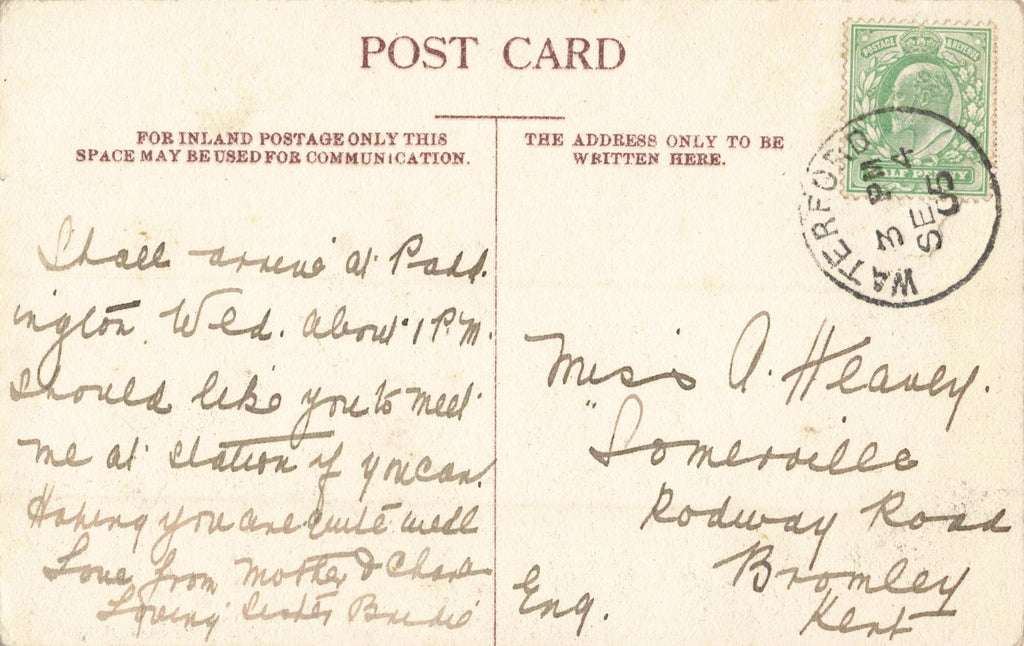 POST CARD
FOR INLAND POSTAGE ONLY THIS
SPACE MAY BE USED FOR COMMUNICATION.
THE ADDRESS ONLY TO BE
WRITTEN HERE.
POSTAGE REVENUE
HALF PENNY
WATERFORD
3 PM
SE 4
05
Shall arrive at Padd.
ington Wed. about 1 P.M.
should like you to meet
me at station if you can.
Hoping you are quite well
Love from Mother & Charl
Loving sister Bridie
Miss A. Heavey.
"Somerville
Rodway Road
Bromley
Kent
Eng.